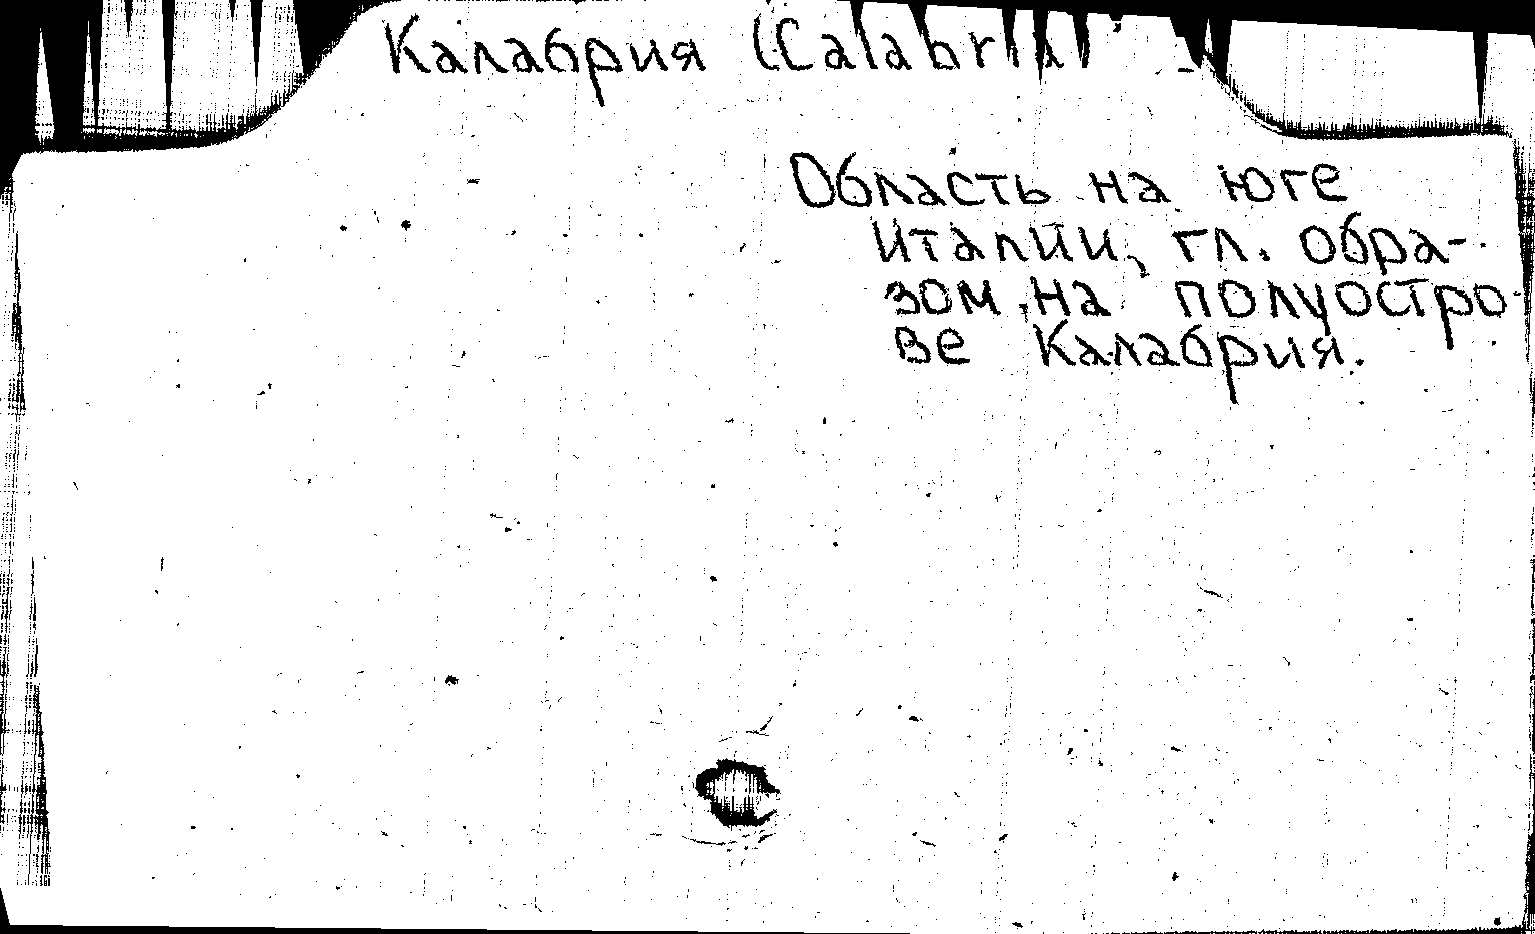 Калабрия (Calabria)
Область на юге
Италии, гл. обра-
зом на полуостро-
ве Калабрия.